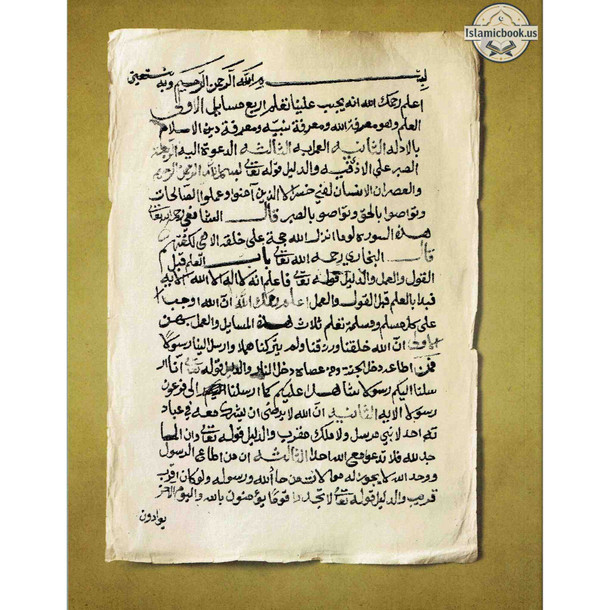 Islamicbook.us
بسم الله الرحمن الرحيم وبه نستعين
اعلم رحمك الله انه يجب علينا تعلم اربع مسايل الاولى
العلم وهو معرفة الله ومعرفة نبيه ومعرفة دين الاسلام
بالادله الثانيه العمل به الثالثه الدعوة اليه الرابعة
الصبر على الاذى فيه والدليل قوله تعالى بسم الله الرحمن الرحيم
والعصر ان الانسان لفي خسر الا الذين امنوا وعملوا الصالحات
وتواصوا بالحق وتواصوا بالصبر قال الشافعي رحمه الله تعالى
هذه السوره لو ما انزل الله حجة على خلقه الا هي لكفتهم
قال البخاري رحمه الله تعالى باب العلم قبل
القول والعمل والدليل قوله تعالى فاعلم انه لا اله الا الله الايه
فبدا بالعلم قبل القول والعمل اعلم رحمك الله ان الله اوجب
على كل مسلم ومسلمة تعلم ثلاث هذه المسايل والعمل بهن
الاولى ان الله خلقنا ورزقنا ولم يتركنا هملا وارسل الينا رسولا
فمن اطاعه دخل الجنة ومن عصاه دخل النار والدليل قوله تعالى انا ار
سلنا اليكم رسولا شاهدا عليكم كما ارسلنا الى فرعون
رسولا الايه الثانيه ان الله لا يرضى ان يشرك معه في عباد
ته احد لا نبي مرسل ولا ملك مقرب والدليل قوله تعالى وان المسا
جد لله فلا تدعو مع الله احدا الثالثه ان من اطاع الرسول
ووحد الله لا يجوز له موالات من حاد الله ورسوله ولو كان اقرب
قريب والدليل قوله تعالى لا تجد قوما يؤمنون بالله واليوم الاخر
يوادون